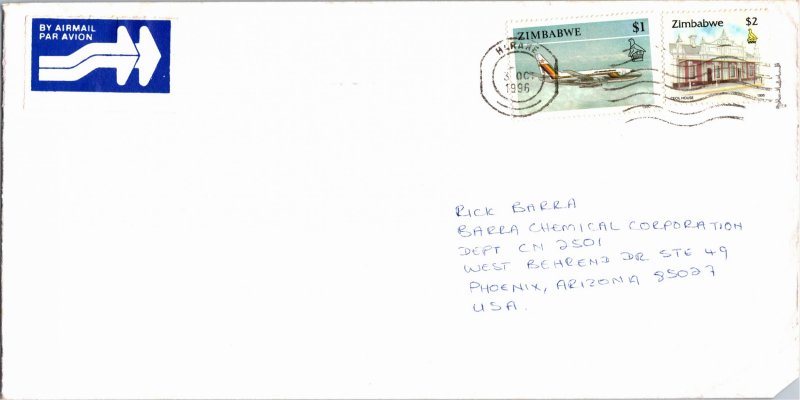 BY AIRMAIL
PAR AVION
ZIMBABWE $1
Zimbabwe $2
HARARE
3 OCT
1996
1995
RICK BARRA
BARRA CHEMICAL CORPORATION
DEPT CN 2501
WEST BEHREND DR STE 49
PHOENIX, ARIZONA 85027
USA.